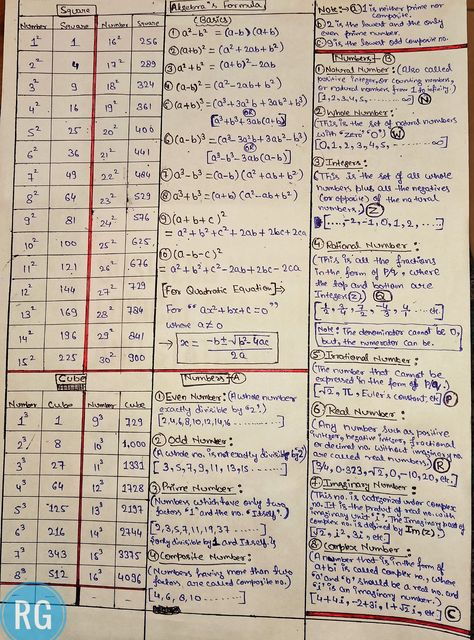 Square
Number Square Number Square
1² 1 16² 256
2² 4 17² 289
3² 9 18² 324
4² 16 19² 361
5² 25 20² 400
6² 36 21² 441
7² 49 22² 484
8² 64 23² 529
9² 81 24² 576
10² 100 25² 625
11² 121 26² 676
12² 144 27² 729
13² 169 28² 784
14² 196 29² 841
15² 225 30² 900
Cube
Number Cube Number Cube
1³ 1 9³ 729
2³ 8 10³ 1,000
3³ 27 11³ 1331
4³ 64 12³ 1728
5³ 125 13³ 2197
6³ 216 14³ 2744
7³ 343 15³ 3375
8³ 512 16³ 4096
RG
Algebra's Formula
(Basics)
① a²-b² = (a-b) (a+b)
② (a+b)² = (a²+2ab+b²)
③ a²+b² = (a+b)²-2ab
④ (a-b)² = (a²-2ab+b²)
⑤ (a+b)³ = (a³+3a²b+3ab²+b³)
OR
[a³+b³+3ab(a+b)]
⑥ (a-b)³ = (a³-3a²b+3ab²-b³)
OR
[a³-b³-3ab(a-b)]
⑦ a³-b³ = (a-b) (a²+ab+b²)
⑧ a³+b³ = (a+b) (a²-ab+b²)
⑨ (a+b+c)²
= a²+b²+c²+2ab+2bc+2ca
⑩ (a-b-c)²
= a²+b²+c²-2ab+2bc-2ca
[For Quadratic Equation]→
For "ax²+bx+c=0"
where a≠0
→ x = -b±√b²-4ac
2a
Numbers-A
① Even Number: (A whole number
exactly divisible by "2".)
[2,4,6,8,10,12,14,16 ........]
② Odd Number:
(A whole no. is not exactly divisible by 2)
[3,5,7,9,11,13,15 .......]
③ Prime Number:
(Numbers which have only two
factors "1" and the no. "Itself")
[2,3,5,7,11,19,37 ........]
④ Composite Number:
(Numbers having more than two
factors are called composite no.)
[4,6,8,10 ......]
Note:→ ⓐ 1 is neither prime nor
composite.
ⓑ 2 is the lowest and the only
even prime number.
ⓒ 9 is the lowest odd composite no.
Numbers-B
① Natural Number: (Also called
positive integer, or counting numbers,
or natural numbers from 1 to infinity.)
[1,2,3,4,5, ........ ∞] N
② Whole Number:
(This is the set of natural numbers
with "zero" "0") W
[0,1,2,3,4,5, ........ ∞]
③ Integers:
(This is the set of all whole
numbers plus all the negatives
(or opposite) of the natural
numbers.) Z
[...,-2,-1,0,1,2, ....]
④ Rational Number:
(This is all the fractions
in the form of P/q, where
the top and bottom are
Integers(z)) Q
Note: The denominator cannot be 0,
but, the numerator can be.
⑤ Irrational Number:
(The number that cannot be
expressed in the form of P/q)
[√2, π, Euler's constant, etc] P
⑥ Real Number:
(Any number such as positive
integer, negative integer, fractional
or decimal no. without imaginary no.
are called real numbers) R
[3/4, 0.323, √2, 0, -10, 20, etc.]
⑦ Imaginary Number:
(This no. is categorized under complex
no. It is the product of real no. with
imaginary unit "i". The Imaginary part of
complex no. is defined by Im(z).)
[√2i, i², 3i, etc.]
⑧ Complex Number:
(A number that is in the form of
a+bi is called complex no., where
"a" and "b" should be a real no. and
"i" is an imaginary number.)
[4+4i, -2+3i, 1+√2i, etc] C